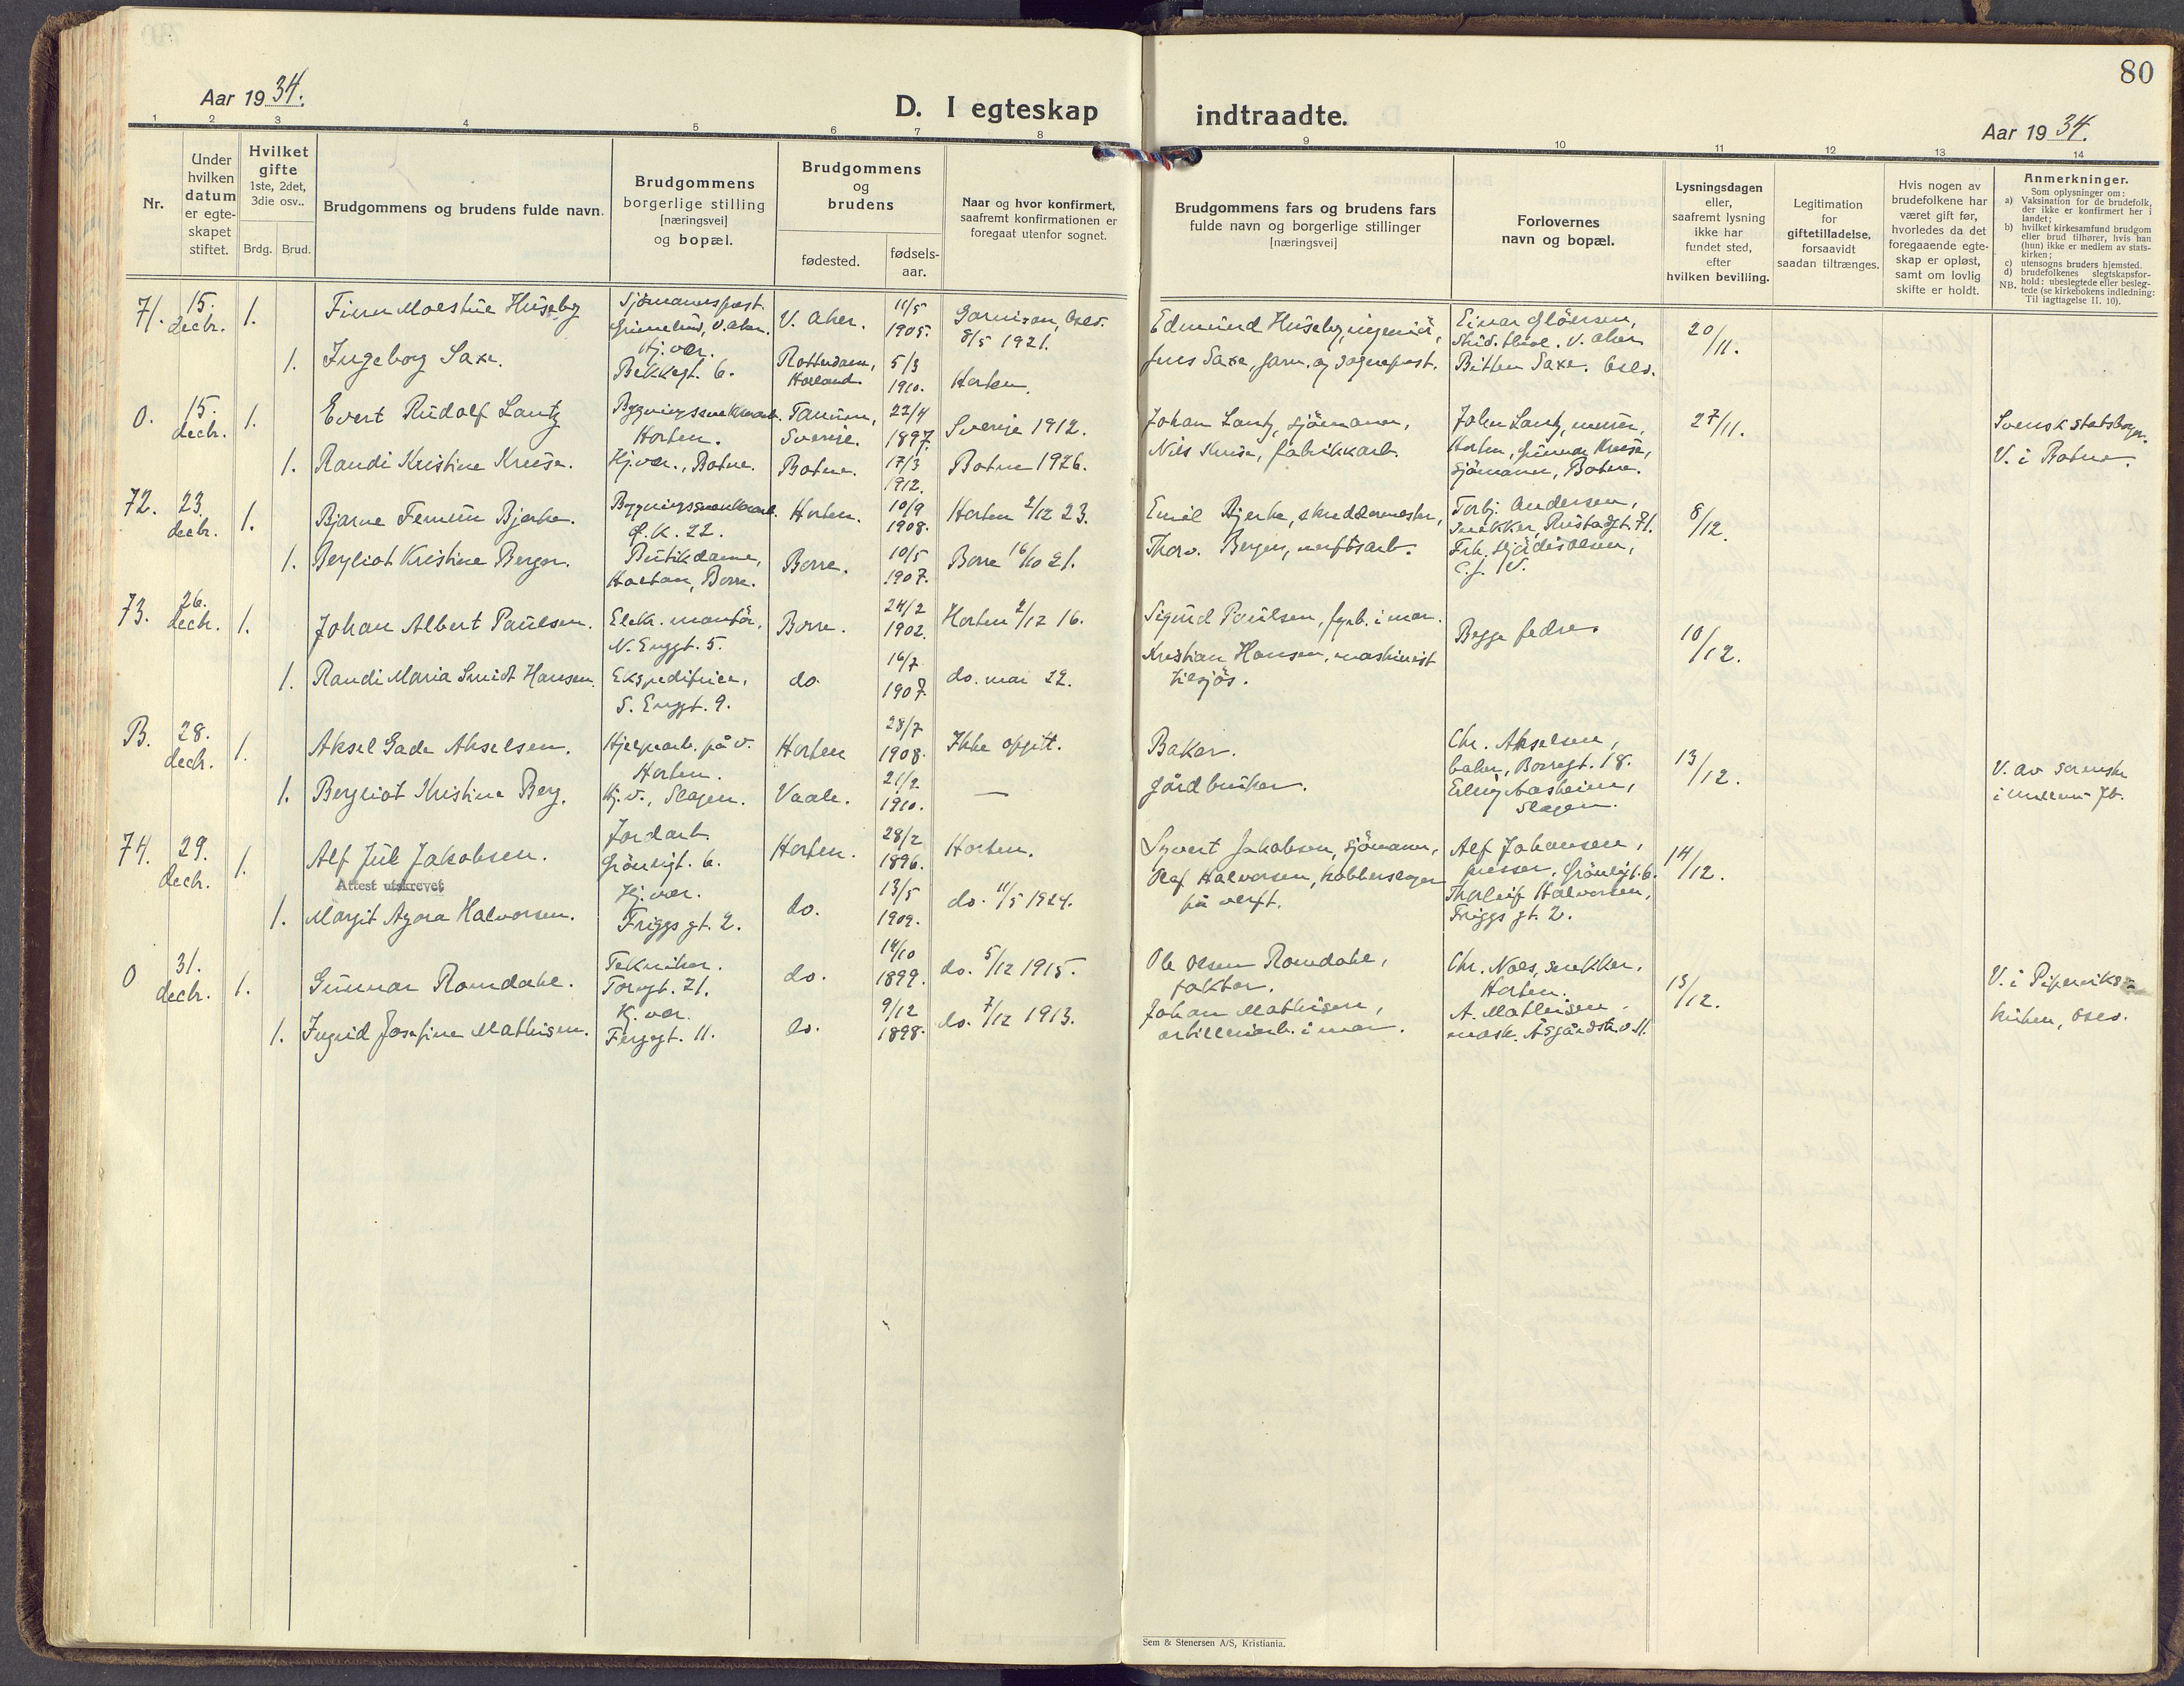 80
Aar 1934.
D. I egteskap indtraadte.
Aar 1934.
1 2 3 4 5 6 7 8 9 10 11 12 13 14
Nr.
Under
hvilken
datum
er egte-
skapet
stiftet.
Hvilket
gifte
1ste, 2det,
3die osv..
Brdg. Brud.
Brudgommens og brudens fulde navn.
Brudgommens
borgerlige stilling
[næringsvei]
og bopæl.
Brudgommens
og
brudens
fødested.
fødsels-
aar.
Naar og hvor konfirmert,
saafremt konfirmationen er
foregaat utenfor sognet.
Brudgommens fars og brudens fars
fulde navn og borgerlige stillinger
[næringsvei]
Forlovernes
navn og bopæl.
Lysningsdagen
eller,
saafremt lysning
ikke har
fundet sted,
efter
hvilken bevilling.
Legitimation
for
giftetilladelse,
forsaavidt
saadan tiltrænges.
Hvis nogen av
brudefolkene har
været gift før,
hvorledes da det
foregaaende egte-
skap er opløst,
samt om lovlig
skifte er holdt.
Anmerkninger.
Som oplysninger om:
a) Vaksination for de brudefolk,
der ikke er konfirmert her i
landet;
b) hvilket kirkesamfund brudgom
eller brud tilhører, hvis han
(hun) ikke er medlem av stats-
kirken;
c) utensogns bruders hjemsted.
d) brudefolkenes slegtskapsfor-
hold: ubeslegtede eller besleg-
NB. tede (se kirkebokens indledning:
Til iagttagelse II. 10).
71. 15. decbr. 1. Finn Moestue Huseby
Sjömannsprest.
Grimelund, V. Aker.
V. Aker.
11/5
1905.
Garnison, Oslo.
8/5 1921.
Edmund Huseby, ingeniör,
Einar
Stud. theol. V. Aker
20/11.
1. Ingeborg Saxe.
Hj.vær.
Bekkegt. 6.
Rotterdam,
Holland.
5/3
1910.
Horten.
Jens Saxe, garn. og sogneprest.
Bitten Saxe. Oslo.
O. 15. decbr. 1. Evert Rudolf Lantz
Horten.
Tanum,
Sverige.
22/4
1897.
Sverige 1912.
Johan Lantz, sjömann,
John Lantz, murer,
27/11.
Svensk statsborger.
1. Randi Kristine Kruse.
Hj.vær., Botne.
Botne.
17/3
1912.
Botne 1926.
Nils Kruse, fabrikkarb.
Horten, Gunnar Kruse,
sjömann, Botne.
V. i Botne.
72. 23. decbr. 1. Bjarne Femun Bjerke.
Ø.K. 22.
Horten.
10/9
1908.
Horten 2/12 23.
Emil Bjerke,
Torbj. Andersen,
snekker, Rustadgt. 71.
8/12.
1. Bergliot Kristine Berger.
Butikdame,
Borre.
Borre.
10/5
1907.
Borre 16/10 21.
Thorv. Berger, verftsarb.
73. 26. decbr. 1. Johan Albert Paulsen.
Elek. montör,
N. Enggt. 5.
Borre.
24/2
1902.
Horten 2/12 16.
Sigurd Paulsen, fyrb. i mar.
Begge fedre.
10/12.
1. Randi Maria Smidt Hansen.
Ekspeditrice,
S. Enggt. 9.
do.
16/7
1907.
do. mai 22.
Kristian Hansen, maskinist
tilsjös.
B. 28. decbr. 1. Aksel Gade Akselsen.
Hjelpearb. på v.
Horten.
Horten
28/7
1908.
Ikke opgitt.
Baker.
Chr. Akselsen,
baker, Borregt. 18.
13/12.
V. av sorenskr.
1. Bergliot Kristine Berg.
Hj.v., Slagen.
Vaale.
21/2
1910.
—
Gårdbruker.
Erling Aasheim,
Slagen.
74. 29. decbr. 1. Alf Jul Jakobsen.
Attest utskrevet
Jordarb.
Grönligt. 6.
Horten.
28/2
1896.
Horten.
Syvert Jakobsen, sjömann,
Alf Johansen,
presser, Grönligt. 6.
14/12.
1. Margit Agora Halvorsen.
Hj.vær.
Friggs gt. 2.
do.
13/5
1909.
do. 11/5 1924.
Olaf Halvorsen, kobberslager
på verft.
Thorleif Halvorsen,
Friggs gt. 2.
O 31. decbr. 1. Gunnar Romdahl.
Tekniker.
Torvgt. 21.
do.
14/10
1899.
do. 5/12 1915.
Ole Olsen Romdahl,
faktor.
Chr. Naes, snekker,
Horten.
15/12.
V. i Piperviks-
kirken, Oslo.
1. Ingrid Josefine Mathisen.
Hj.vær.
Fergegt. 11.
do.
9/12
1898.
do. 7/12 1913.
Johan Mathisen,
artilleriarb. i mar.
A. Mathisen.
Sem & Stenersen A/S, Kristiania.